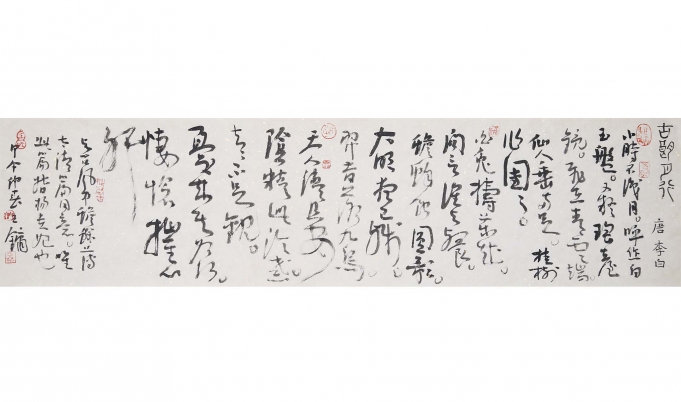 古朗月行
唐 李白
小時不識月。呼作白
玉盤。又疑瑤臺
鏡。飛在青雲端。
仙人垂兩足。桂樹
作團團。
白兔擣藥成。
問言誰與餐。
蟾蜍蝕圓影。
大明夜已殘。
羿昔落九烏
天人清且安
陰精此淪惑。
去去不足觀。
憂來其如何。
悽愴摧心
肝
此篇指楊貴妃也